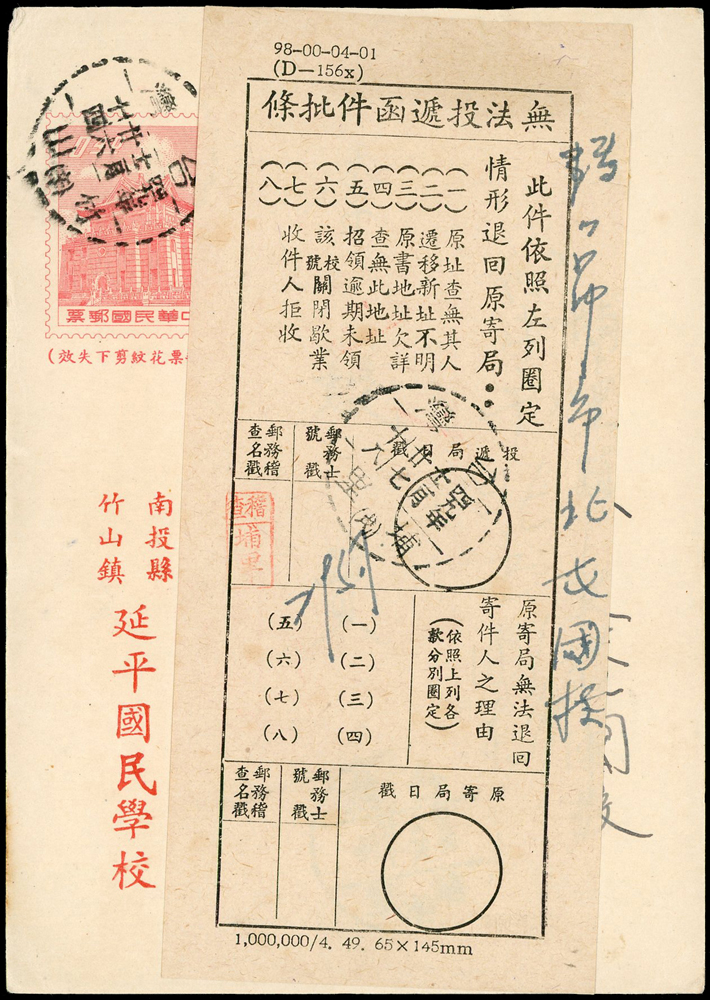 98-00-04-01
(D—156x)
無法投遞函件批條
此件依照左列圈定
情形退回原寄局：
(一)原址查無其人
(二)遷移新址不明
(三)原書地址欠詳
(四)查無此地址
(五)招領逾期未領
(六)該校號關閉歇業
(七)收件人拒收
(八)
投遞局日戳
郵務士
號戳
郵務稽
查名戳
稽查
埔里
原寄局無法退回
寄件人之理由
(依照上列各
款分別圈定)
(一)
(二)
(三)
(四)
(五)
(六)
(七)
(八)
原寄局日戳
郵務士
號戳
郵務稽
查名戳
1,000,000/4. 49. 65×145mm
中華民國郵票
票花紋剪下失效)
南投縣
竹山鎮
延平國民學校